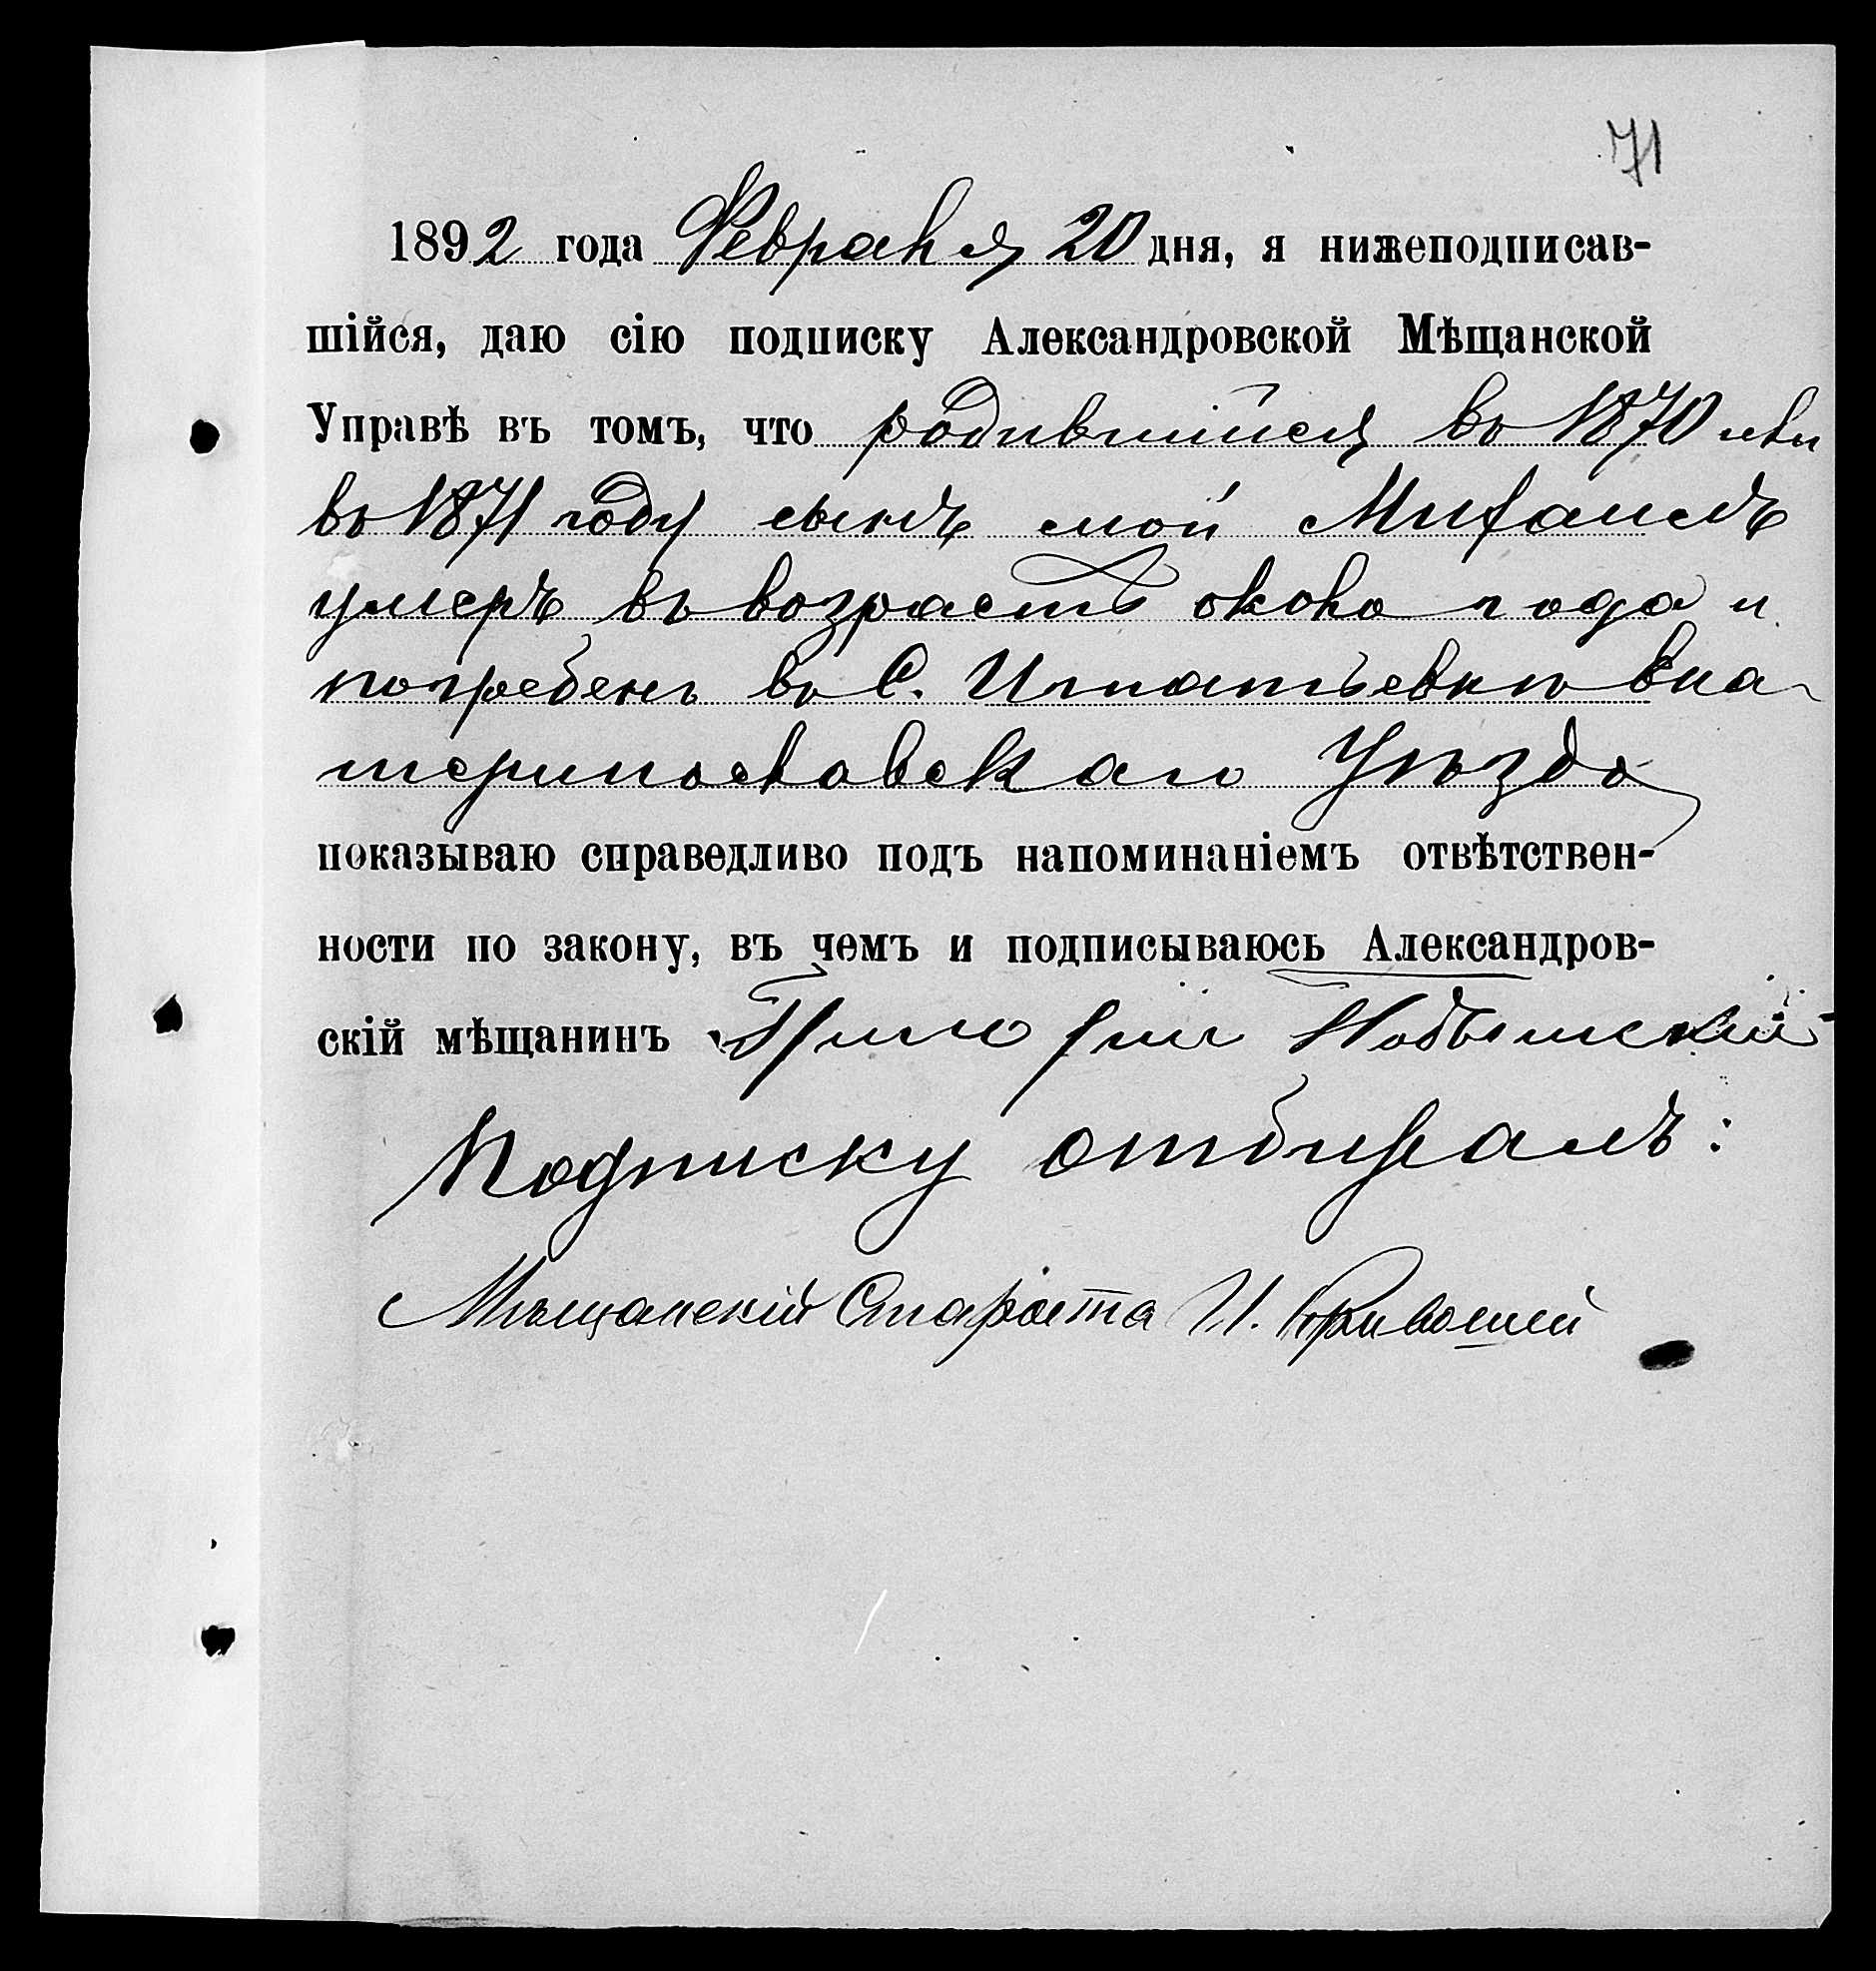 71
1892 года Февраля 20 дня, я нижеподписав-
шійся, даю сію подписку Александровской Мѣщанской
Управѣ въ томъ, что родившійся въ 1870 или
въ 1871 году сынъ мой Михаилъ
умеръ въ возрастѣ около года и
погребенъ въ С. Игнатьевкѣ Ека-
теринославскаго Уѣзда
показываю справедливо подъ напоминаніемъ отвѣтствен-
ности по закону, въ чемъ и подписываюсь Александров-
скій мѣщанинъ
Подписку отбиралъ:
Мѣщанскій Староста И. Кривошей